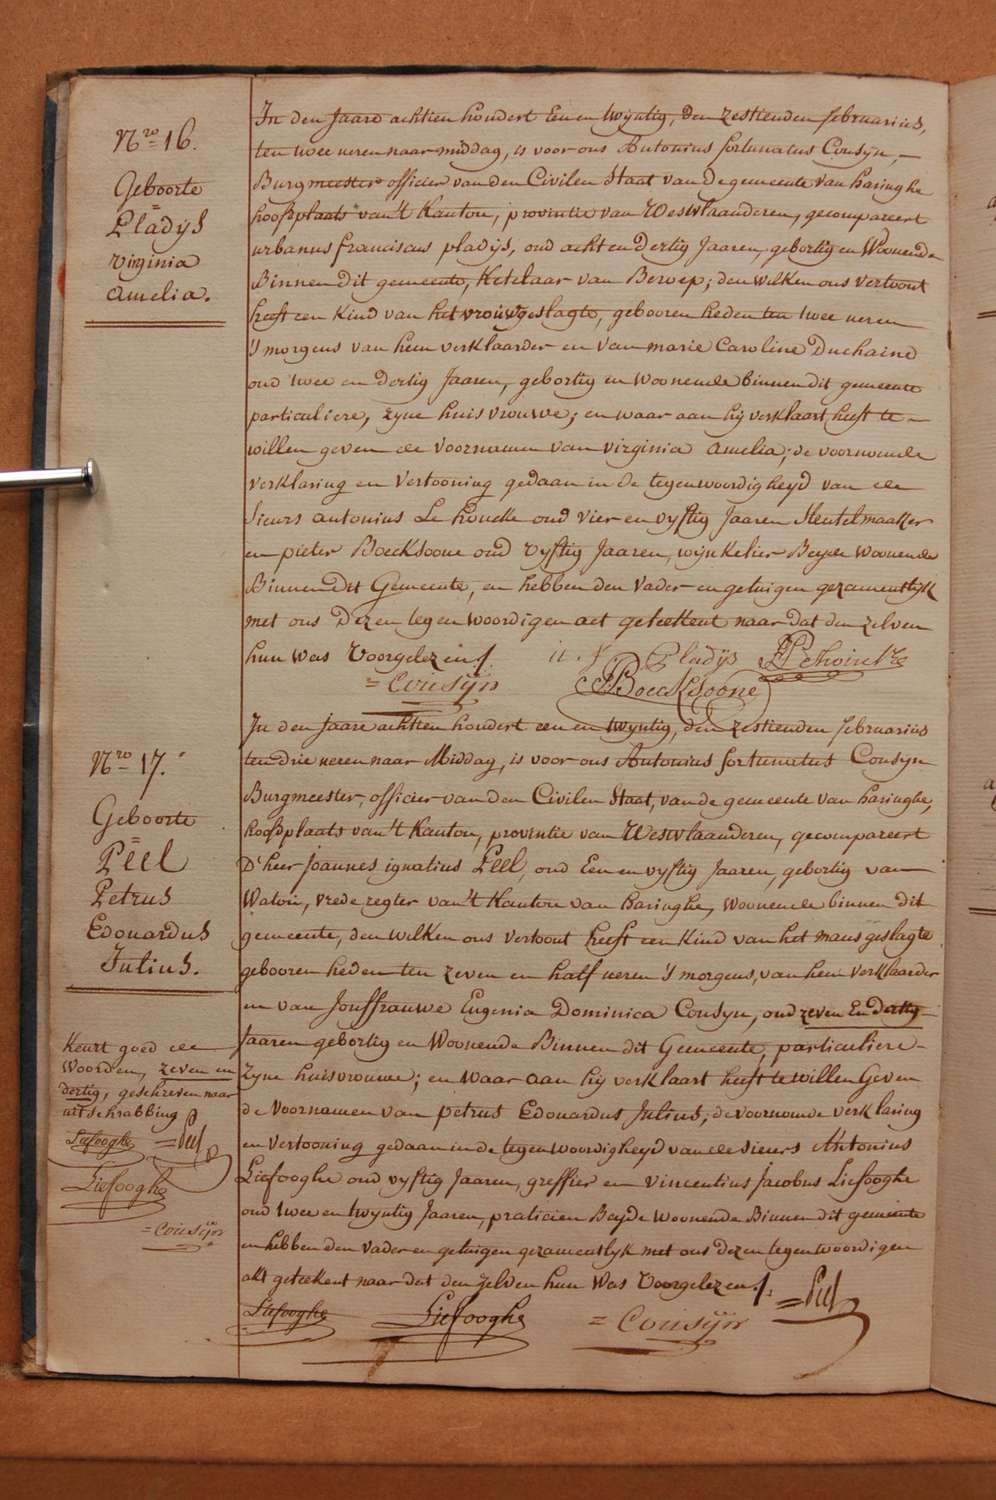 Nro 16.
Geboorte
Pladys
virginia
amelia.
In den Jaare achtien hondert Een en twyntig, den zestienden februarius,
ten twee ueren naar middag, is voor ons Antonius fortunatus Cousyn,
Burgmeester officier van den Civilen Staat van de gemeente van haringhe
hoofdplaats van't Kanton, provintie van Westvlaanderen, gecompareert
urbanus franciscus pladijs, oud acht en dertig Jaaren, gebortig en Woonende
Binnen dit gemeente, Ketelaar van Beroep; den welken ons vertoont
heeft een Kind van het vrouwgeslagte, gebooren heden ten twee ueren
's morgens van hem verklaarder en van marie Caroline Duchaine
oud twee en dertig Jaaren, gebortig en woonende binnen dit gemeente
particuliere, zyne huisvrouwe; en waar aan hij verklaart heeft te
willen geven de voornamen van virginia amelia; de voornoemde
verklaring en vertooning gedaan in de tegenwoordigheyd van de
sieurs antonius Le houcke oud vier en vyftig Jaaren sleutelmaaker
en pieter Boecksoone oud vyftig Jaaren, wijnkelier Beyde Woonende
Binnen dit Gemeente, en hebben den vader en getuigen gezamentlyk
met ons Dezen tegenwoordigen act geteekent naar dat den zelven
hun was Voorgelezen.
u. f. Pladijs
= Cousijn
PBoecksoone
Nro 17.
Geboorte
Péel
Petrus
Edouardus
Julius.
In den jaare achtien hondert een en twyntig, den zestienden februarius
ten drie ueren naar Middag, is voor ons Antonius fortunatus Cousyn
Burgmeester, officier van den Civilen Staat, van de gemeente van haringhe,
hoofdplaats van't Kanton, provintie van Westvlaanderen, gecompareert
D'heer joannes ignatius Péel, oud Een en vyftig Jaaren, gebortig van
Watou, vrederegter van't Kanton van haringhe, woonende binnen dit
gemeente, den welken ons vertoont heeft een Kind van het mans geslagte
gebooren heden ten zeven en half ueren 's morgens, van hem verklaarder
en van Jouffrauwe Eugenia Dominica Cousyn, oud zeven En dertig
Jaaren gebortig en Woonende Binnen dit Gemeente, particuliere
zyne huisvrouwe; en waar aan hij verklaart heeft te willen Geven
de voornamen van petrus Edouardus Julius; de voornoemde verklaring
en vertooning gedaan in de tegenwoordigheyd van de sieurs Antonius
Liefooghe oud vyftig Jaaren, greffier en vincentius jacobus Liefooghe
oud twee en twyntig Jaaren, praticien Beyde woonende Binnen dit gemeente
en hebben den vader en getuigen gezamentlyk met ons dezen tegenwoordigen
akt geteekent naar dat den zelven hun Was Voorgelezen.
Liefooghe Liefooghe = Cousijn = Peel
Keurt goed de
Woorden, zeven en
dertig, geschreven naar
uitschrabbing
Liefooghe = Peel
Liefooghe
= Cousijn